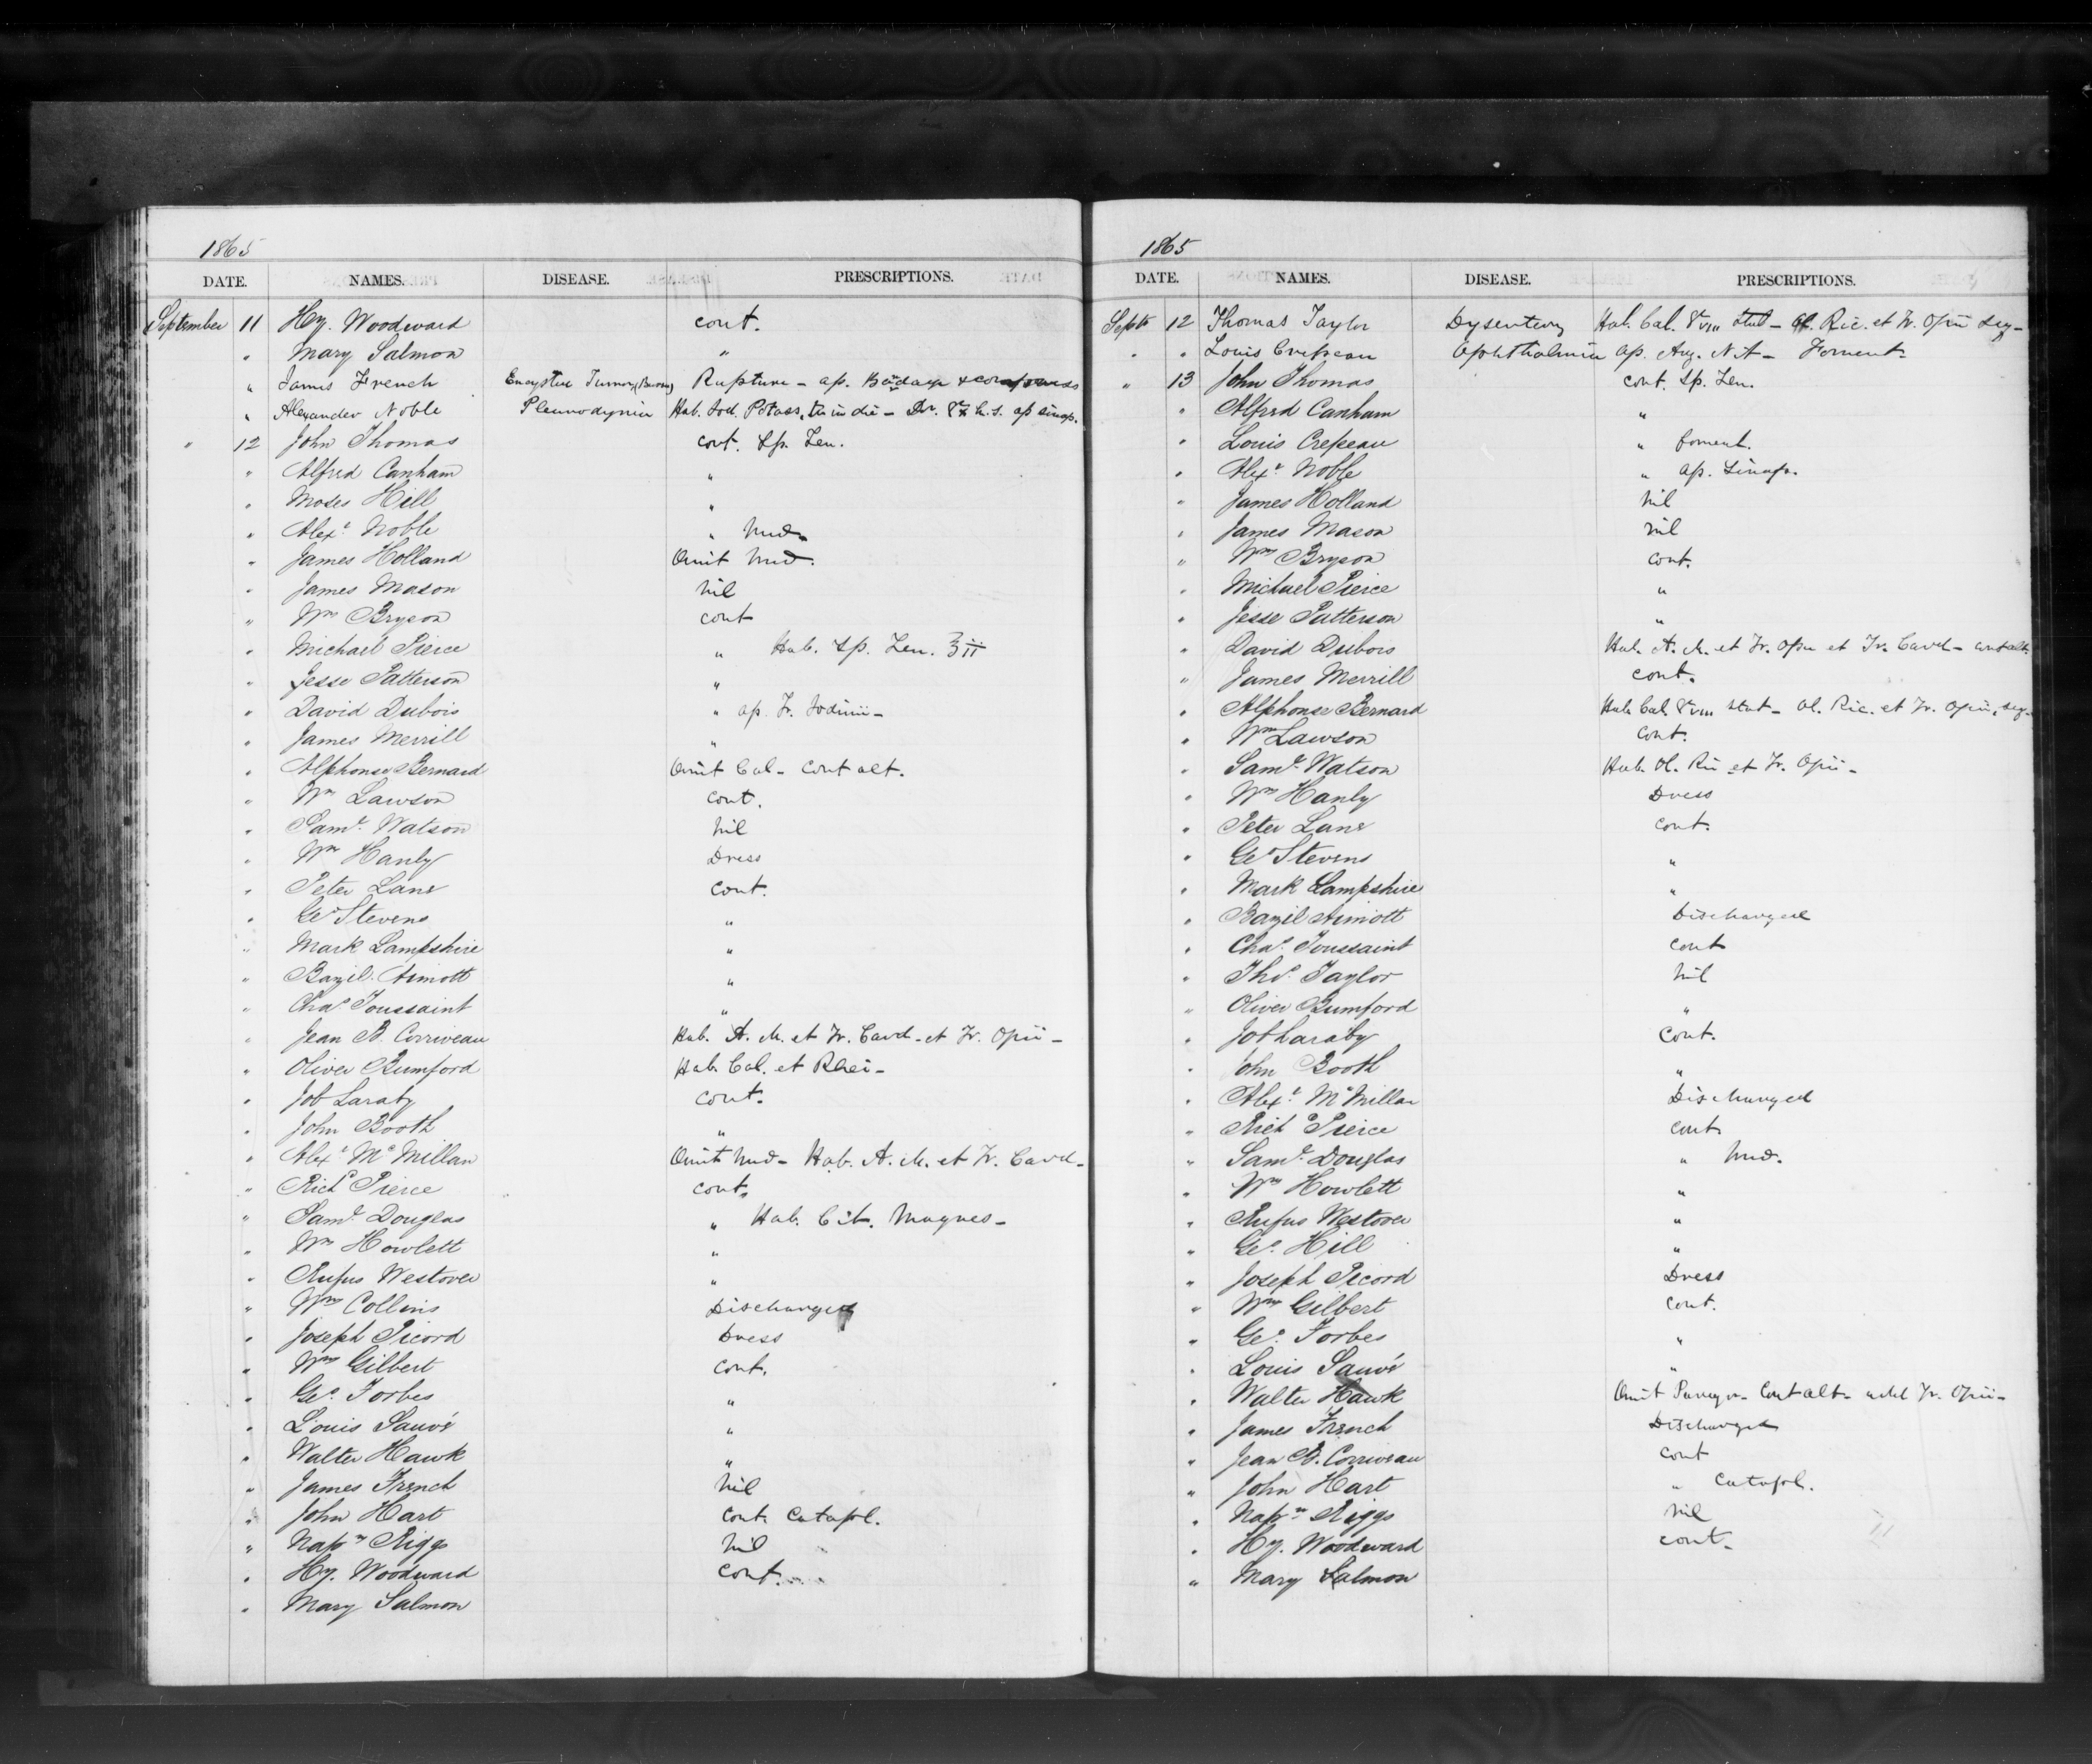 1865
DATE. NAMES. DISEASE. PRESCRIPTIONS.
September 11 Hy. Woodward cont.
" Mary Salmon "
" James French Encysted Tumor Rupture - ap. Bandage & compress
" Alexander Noble Pleurodynia Hab. Iod. Potass. ter in die - h.s. ap sinap.
" 12 John Thomas cont. Sp. Len.
" Alfred Canham "
" Moses Hill "
" Alexr. Noble " Med.
" James Holland Omit Med.
" James Mason nil
" Wm Bryson cont
" Michael Pierce " Hab. Sp. Len. ʒii
" Jesse Patterson "
" David Dubois " ap. Tr. Iodinii -
" James Merrill "
" Alphonse Bernard Omit Cal - Cont alt.
" Wm Lawson cont.
" Saml. Watson nil
" Wm Hanly Dress
" Peter Lane Cont.
" Geo Stevens "
" Mark Lampshire "
" Bazil Amiott "
" Chas Toussaint "
" Jean B. Corriveau Hab. A. M. et Tr. Card - et Tr. Opii -
" Oliver Bumford Hab. Cal. et Rhei -
" Job Laraby cont.
" John Booth "
" Alexr. Mc Millan Omit Med - Hab. A. M. et Tr. Card -
" Richd Pierce cont.
" Saml. Douglas " Hab. Cit. Magnes -
" Wm Howlett "
" Rufus Westover "
" Wm Collins Discharged
" Joseph Picord Dress
" Wm Gilbert cont.
" Geo. Forbes "
" Louis Sauvé "
" Walter Hawk "
" James French nil
" John Hart Cont. Catapl.
" Napn Riggs nil
" Hy. Woodward cont.
" Mary Salmon
1865
DATE. NAMES. DISEASE. PRESCRIPTIONS.
Septr 12 Thomas Taylor Dysentery Hab. Cal. gr viii stat - Ol. Ric. et Tr. Opii seq -
" " Louis Crepeau Ophthalmia ap. Arg. Nit - Foment.
" 13 John Thomas cont. Sp. Len.
" Alfred Canham "
" Louis Crepeau " foment.
" Alexr. Noble " ap. Sinap.
" James Holland nil
" James Mason nil
" Wm Bryson cont.
" Michael Pierce "
" Jesse Patterson "
" David Dubois Hab. A. M. et Tr. Opii et Tr. Card - cont alt.
" James Merrill cont.
" Alphonse Bernard Hab. Cal. gr viii stat - Ol. Ric. et Tr. Opii, seq -
" Wm Lawson cont.
" Saml. Watson Hab. Ol. Ric et Tr. Opii -
" Wm Hanly Dress
" Peter Lane cont.
" Geo Stevens "
" Mark Lampshire "
" Bazil Amiott Discharged
" Chas. Toussaint cont
" Thos. Taylor nil
" Oliver Bumford "
" Job Laraby Cont.
" John Booth "
" Alexr. Mc Millan Discharged
" Richd Pierce cont.
" Saml. Douglas " Med.
" Wm Howlett "
" Rufus Westover "
" Geo. Hill "
" Joseph Picord Dress
" Wm Gilbert Cont.
" Geo. Forbes "
" Louis Sauvé "
" Walter Hawk Omit - Cont alt - add Tr. Opii -
" James French Discharged
" Jean B. Corriveau cont
" John Hart " Catapl.
" Napn. Riggs nil
" Hy. Woodward cont.
" Mary Salmon